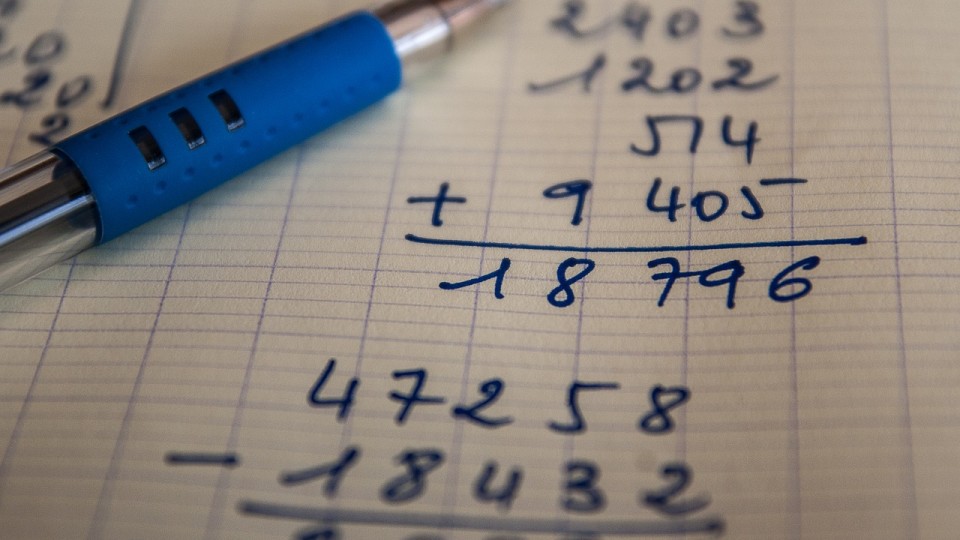 20
20
2
2403
1202
514
+ 9 405
18 796
47258
- 18432